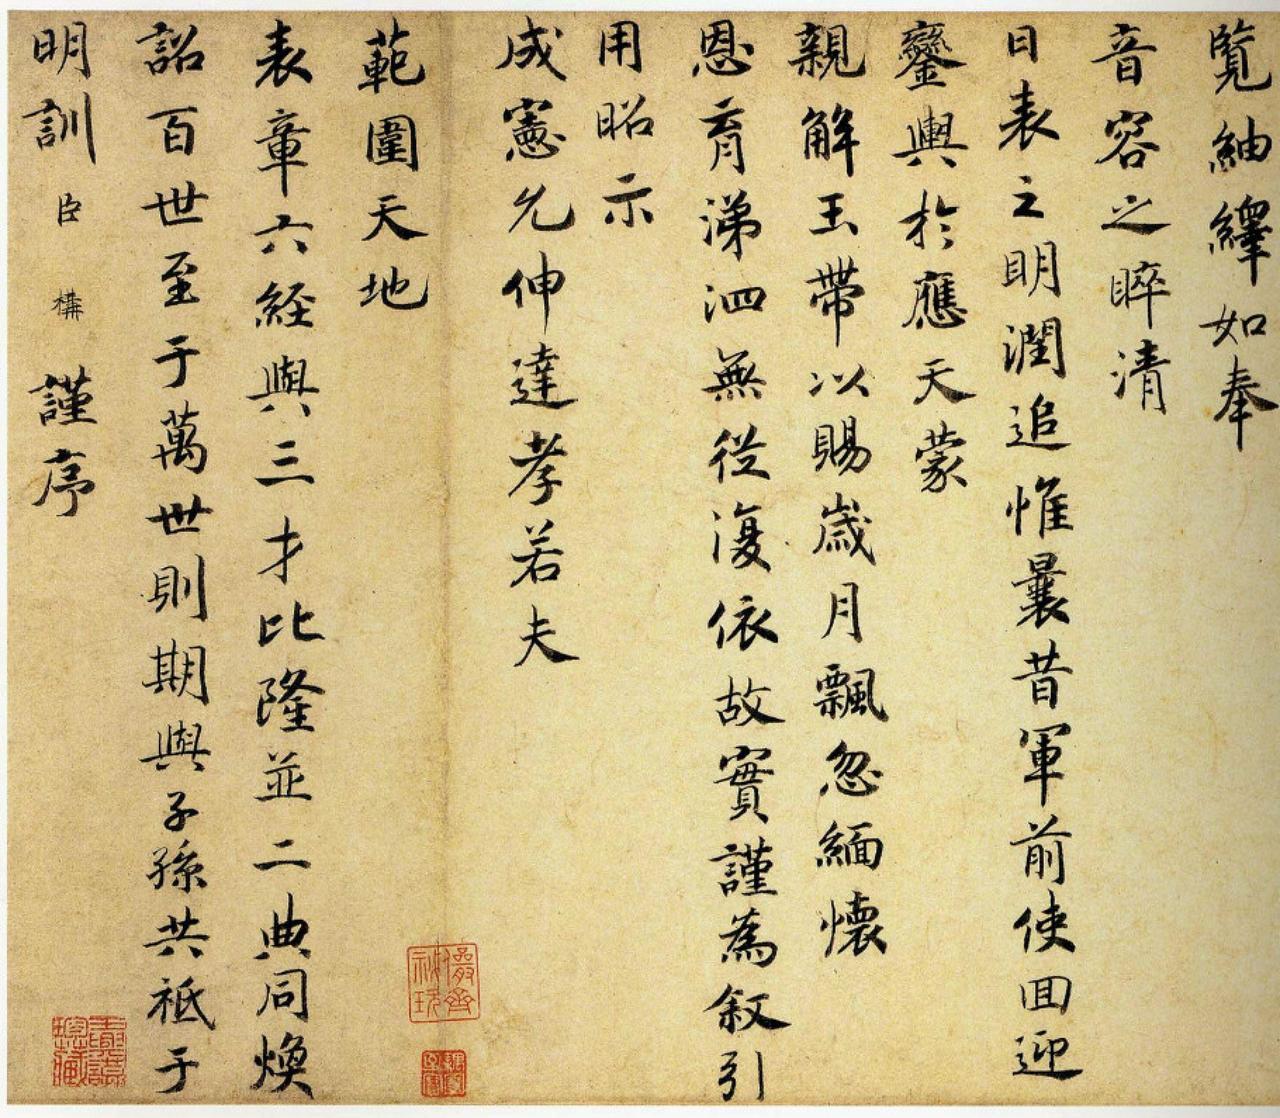 覽紬繹如奉
音容之睟清
日表之明潤追惟曩昔軍前使回迎
鑾輿於應天蒙
親解玉帶以賜歲月飄忽緬懷
恩育涕泗無從復依故實謹為叙引
用昭示
成憲允伸達孝若夫
範圍天地
表章六経與三才比隆並二典同煥
詔百世至于萬世則期與子孫共祗于
明訓臣構謹序